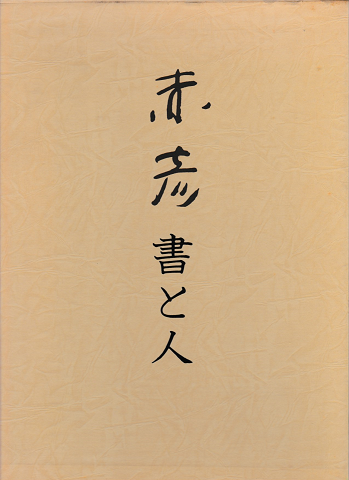 赤彦 書と人